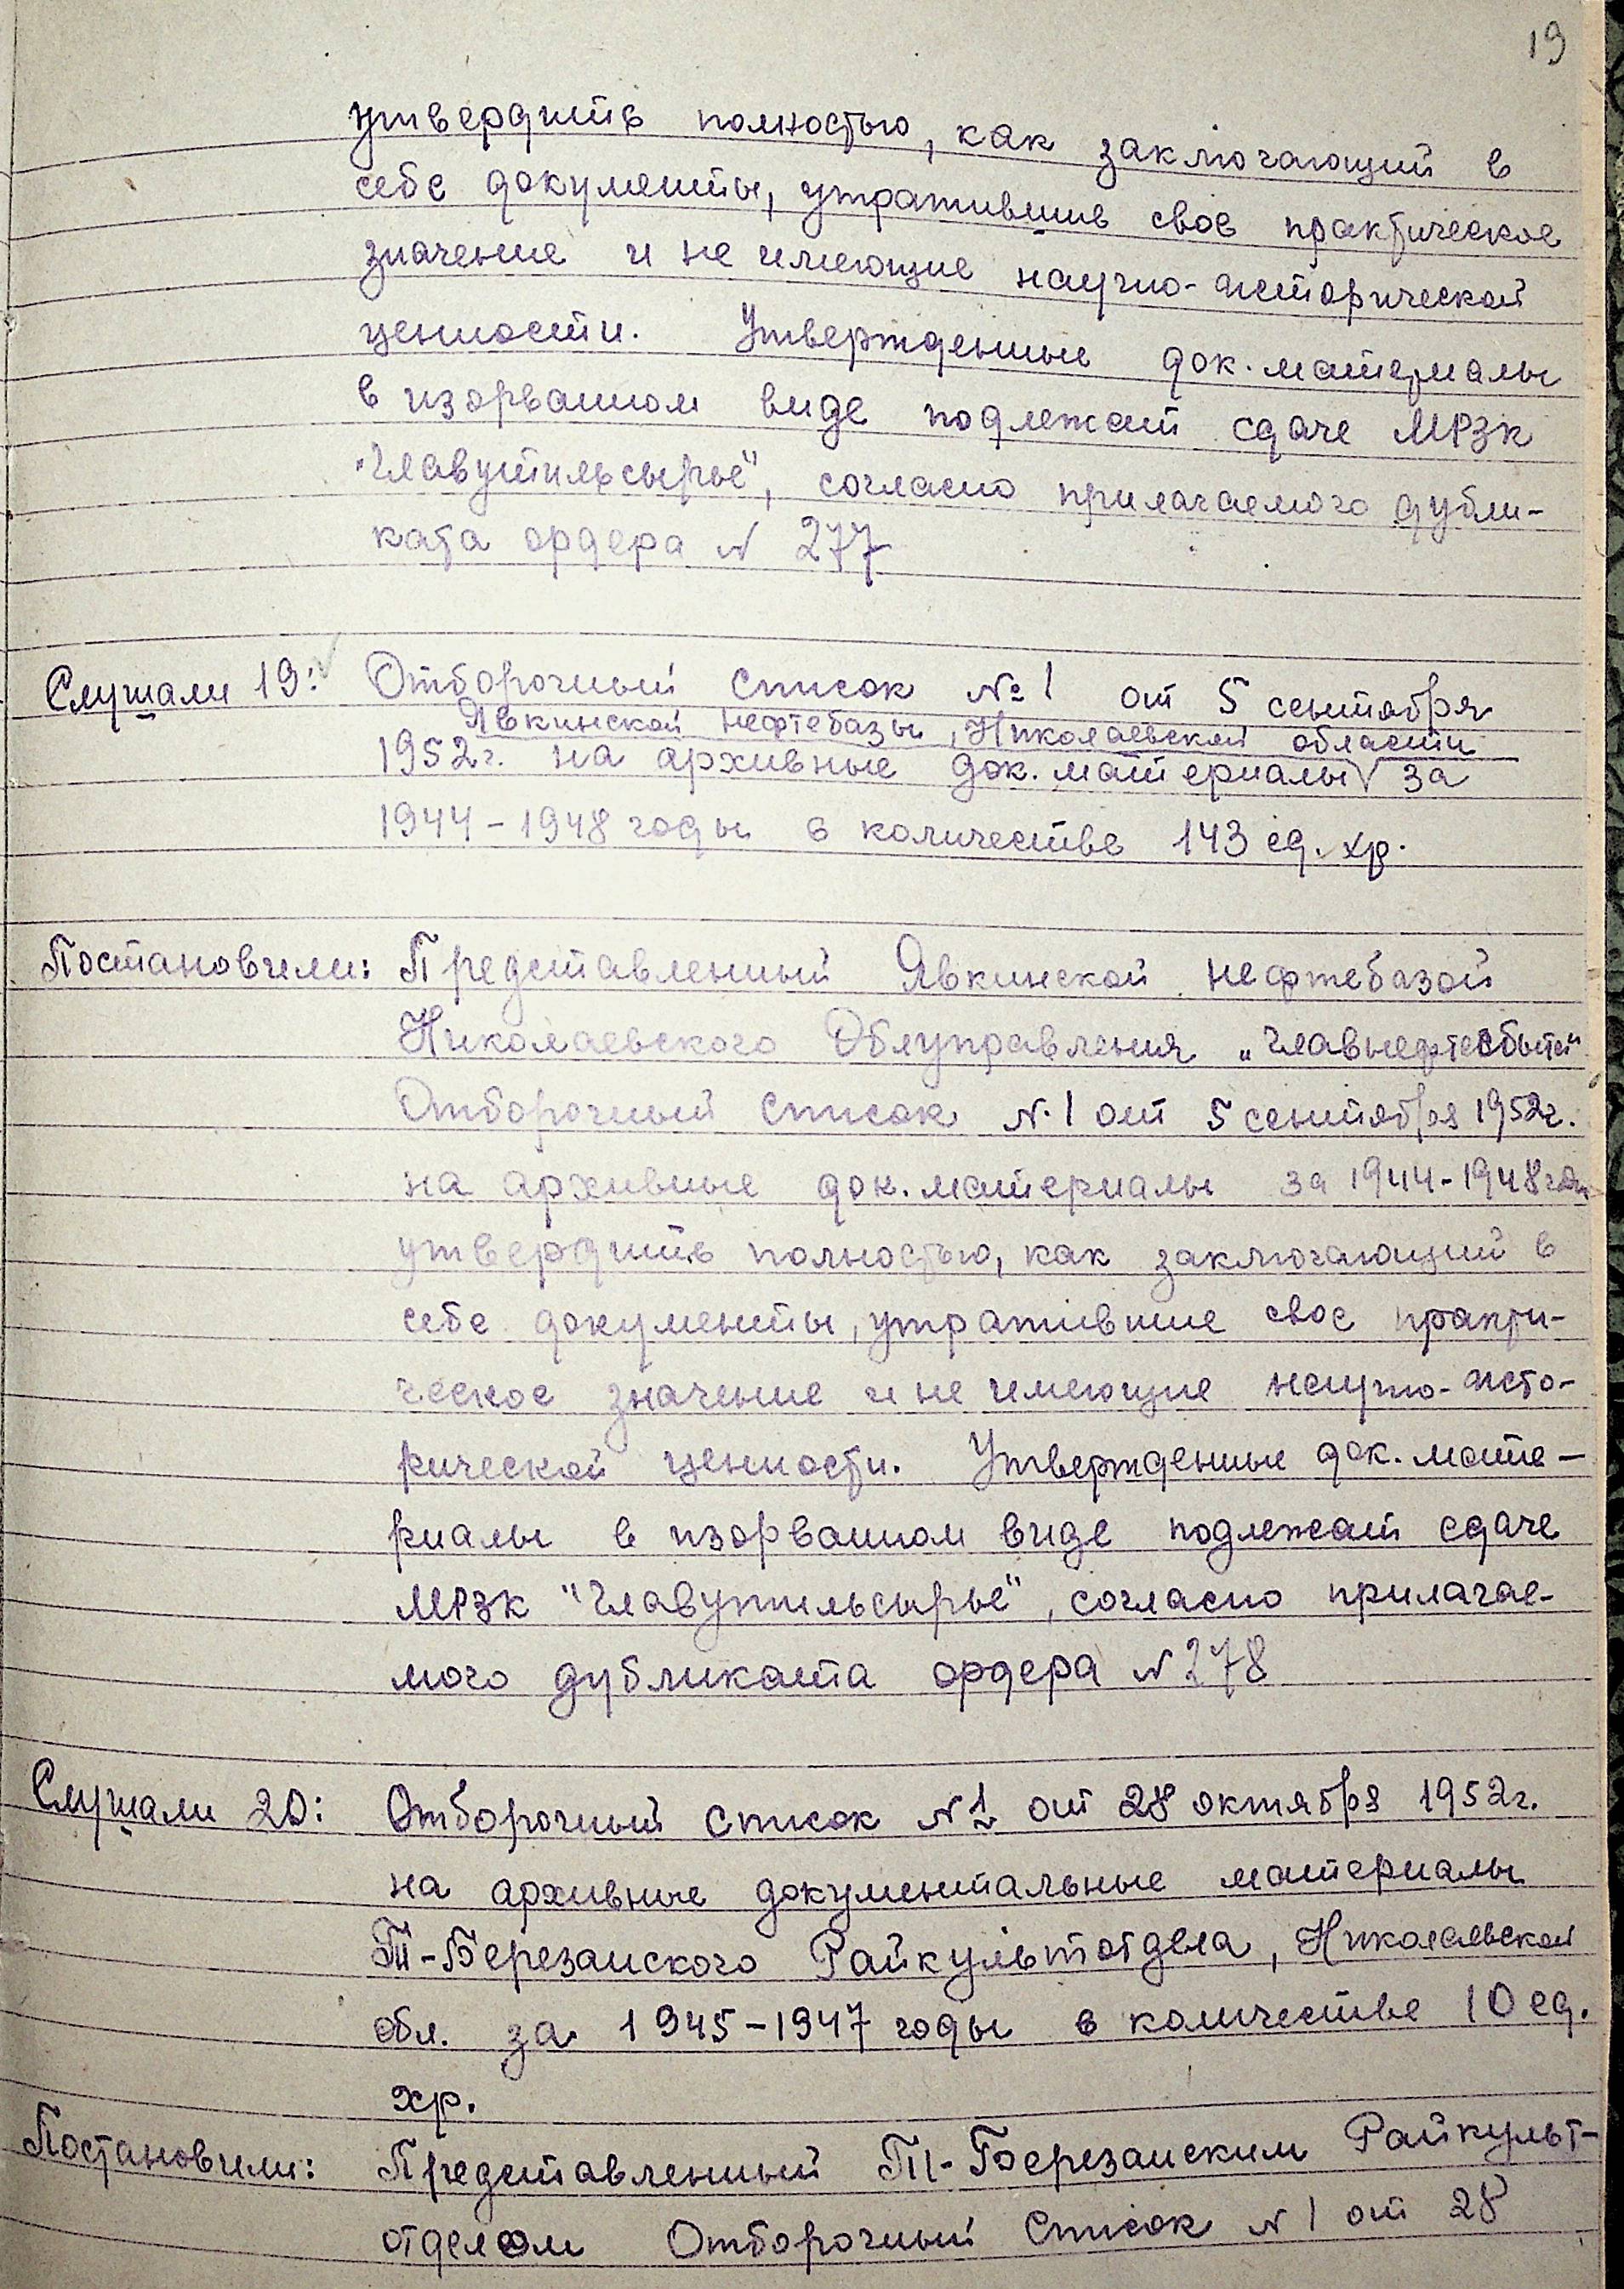 19
утвердить полностью, как заключающий в
себе документы, утратившие свое практическое
значение и не имеющие научно-исторической
ценности. Утвержденные док. материалы
в изорванном виде подлежат сдаче МРЗК
"Главутильсырье", согласно прилагаемого дубли-
ката ордера № 277
Слушали 19: Отборочный список № 1 от 5 сентября
Явкинской нефтебазы, Николаевской области
1952г. на архивные док. материалы √ за
1944-1948 годы в количестве 143 ед. хр.
Постановили: Представленный Явкинской нефтебазой
Николаевского Облуправления „Главнефтесбыта"
Отборочный список № 1 от 5 сентября 1952г.
на архивные док. материалы за 1944-1948 годы
утвердить полностью, как заключающий в
себе документы, утратившие свое практи-
ческое значение и не имеющие научно-исто-
рической ценности. Утвержденные док. мате-
риалы в изорванном виде подлежат сдаче
МРЗК "Главутильсырье", согласно прилагае-
мого дубликата ордера № 278
Слушали 20: Отборочный список № 1 от 28 октября 1952г.
на архивные документальные материалы
Т-Березанского Райкультотдела, Николаевской
обл. за 1945-1947 годы в количестве 10 ед.
хр.
Постановили: Представленный Т-Березанским Райкульт-
отделом Отборочный список № 1 от 28